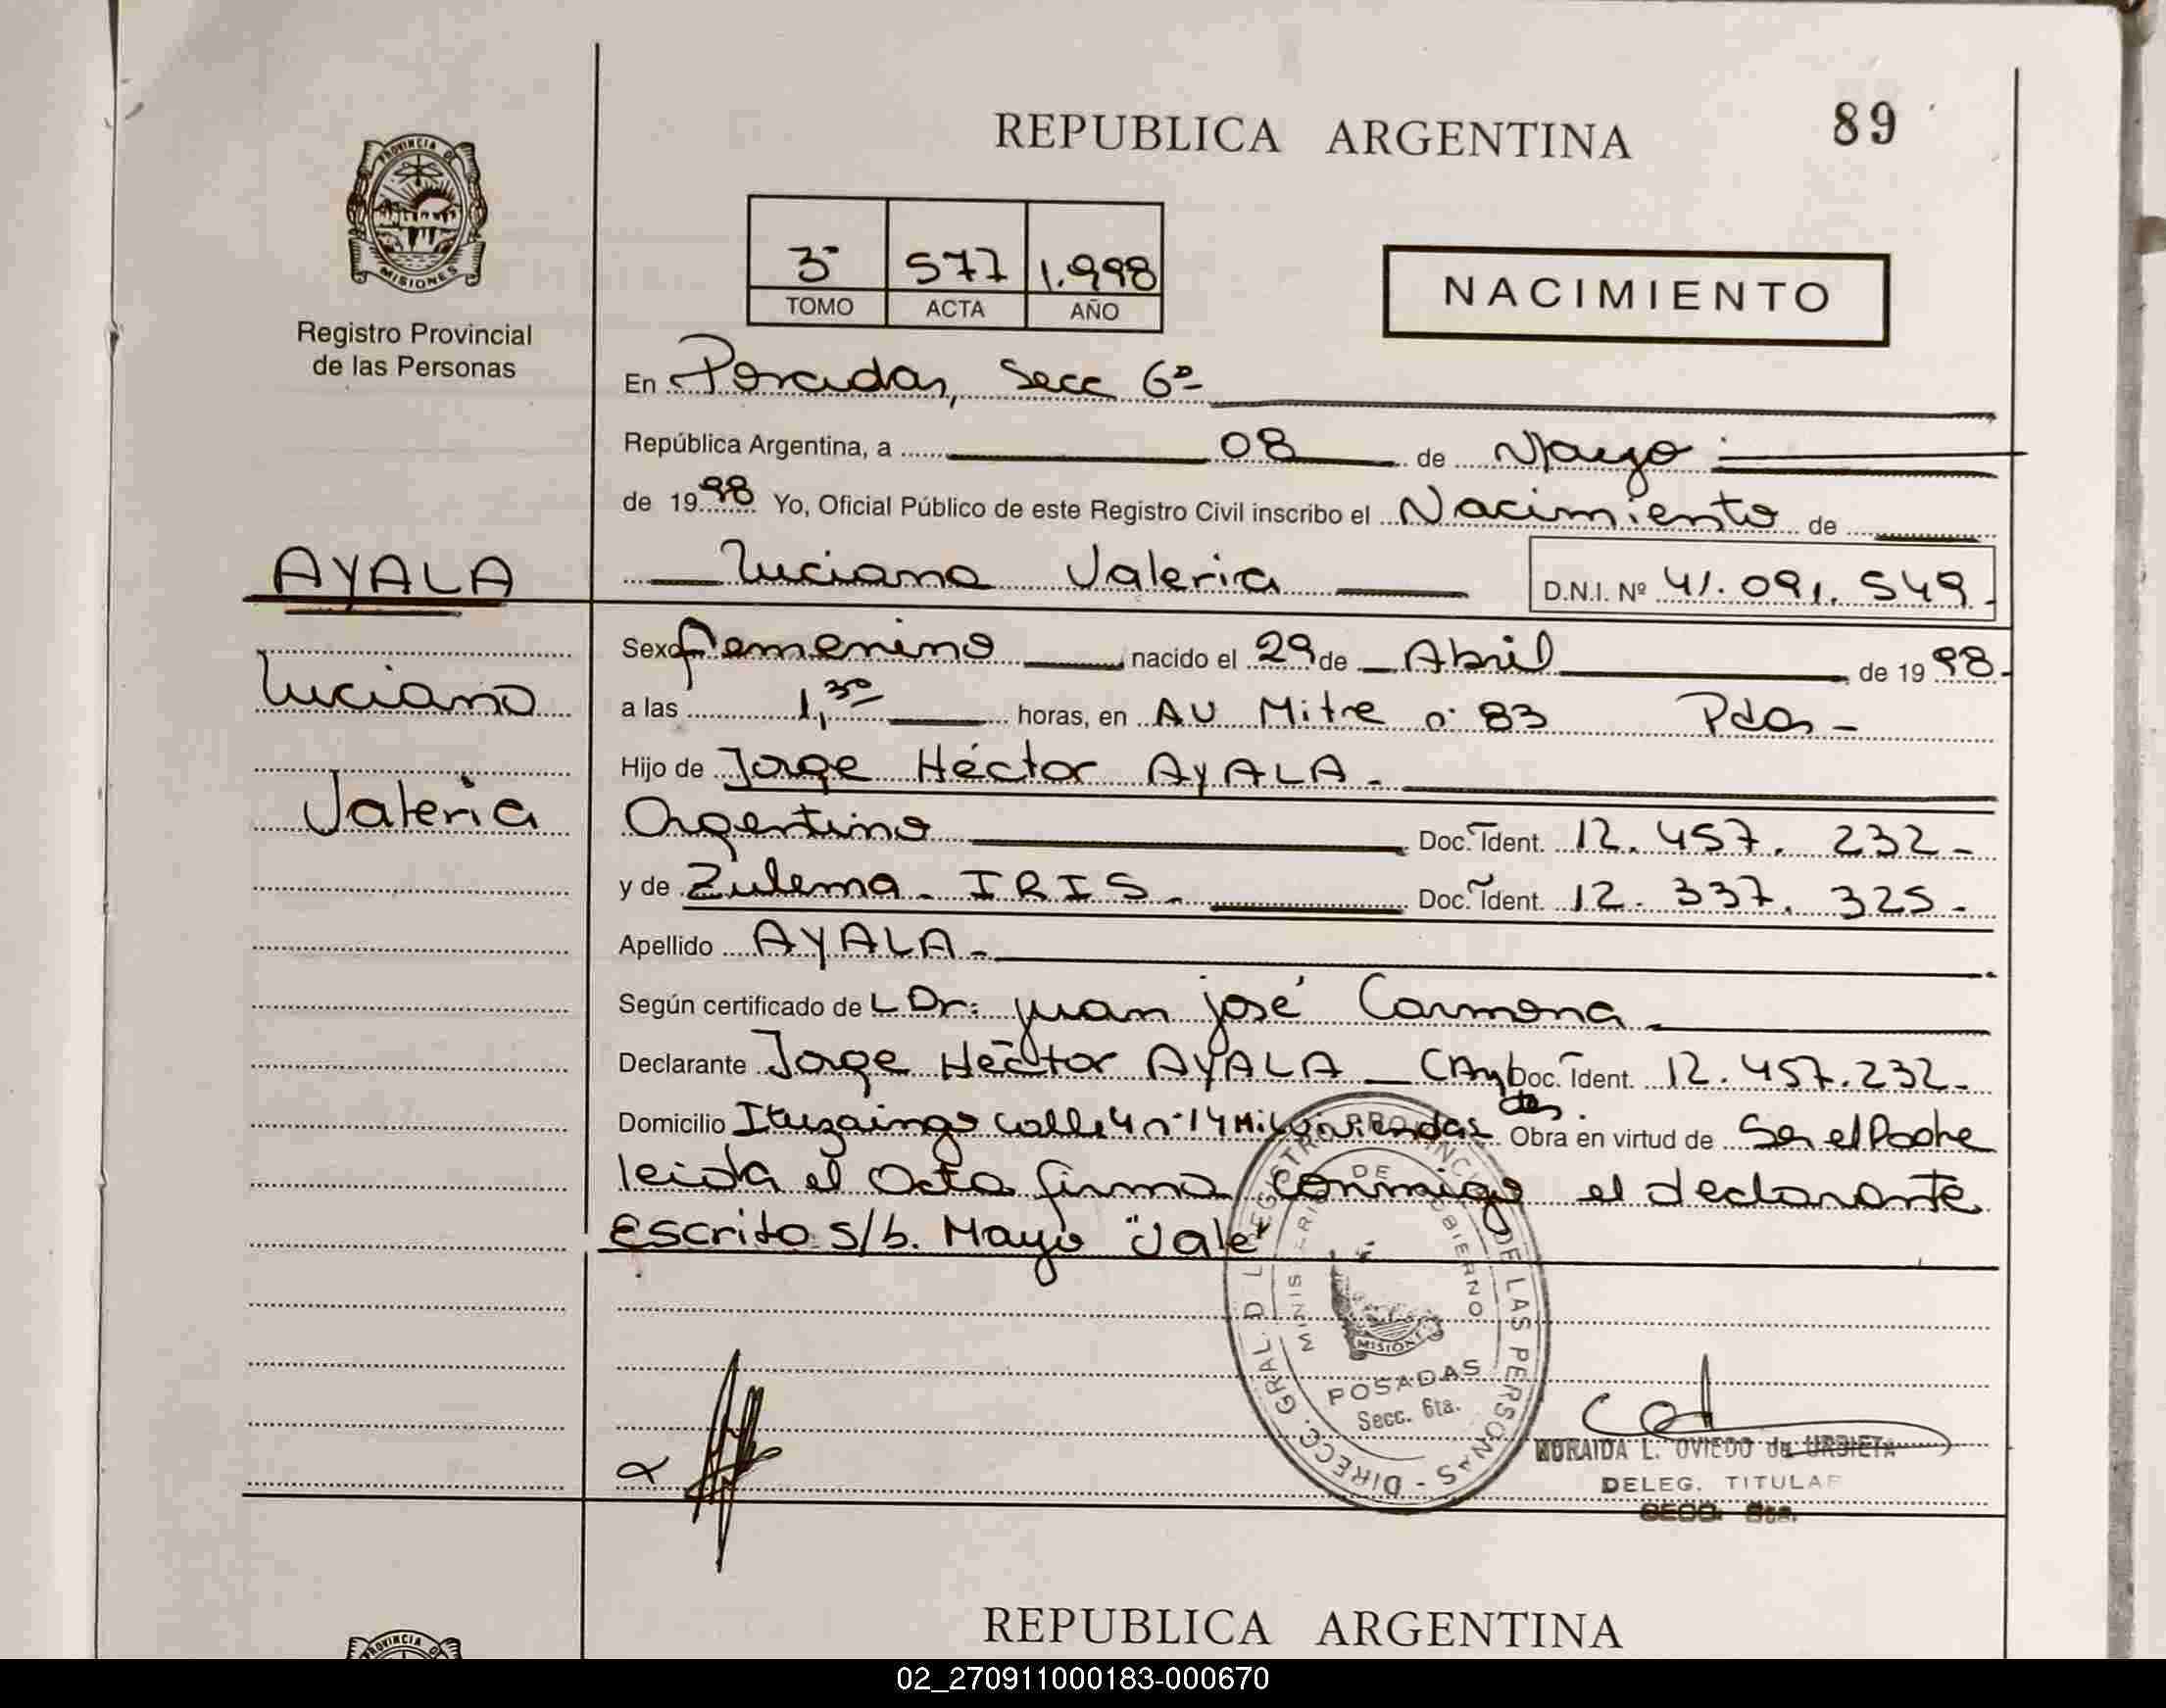 REPUBLICA ARGENTINA
89
PROVINCIA DE
MISIONES
Registro Provincial
de las Personas
3º 577 1.998
TOMO ACTA AÑO
NACIMIENTO
En Posadas, Secc 6ª
República Argentina, a 08 de Mayo
de 1998 Yo, Oficial Público de este Registro Civil inscribo el Nacimiento de
AYALA
Luciana Valeria
D.N.I. Nº 41.091.549.-
Luciana
Valeria
Sexo Femenino nacido el 29 de Abril de 1998.-
a las 1,30 horas, en AV Mitre nº 83 Pdas -
Hijo de Jorge Héctor AYALA.-
Argentino Doc. Ident. 12.457.232-
y de Zulema - IRIS - Doc. Ident. 12.337.325-
Apellido AYALA-
Según certificado de L Dr: Juan José Carmona
Declarante Jorge Héctor AYALA - Doc. Ident. 12.457.232-
Domicilio Ituzaingo calle 4 nº 14 Mil Viviendas Obra en virtud de Ser el Padre
leida el Acta firma conmigo el declarante
Escrito s/b. Mayo "Vale"
DIRECC. GRAL. D L REGISTR PROVINCI DE LAS PERSONAS
MINIS ERIO DE GOBIERNO
MISIONES
POSADAS
Secc. 6ta.
L. OVIEDO de URBIETA
DELEG. TITULAR
SECC. 6ta.
REPUBLICA ARGENTINA
PROVINCIA D
02_270911000183-000670